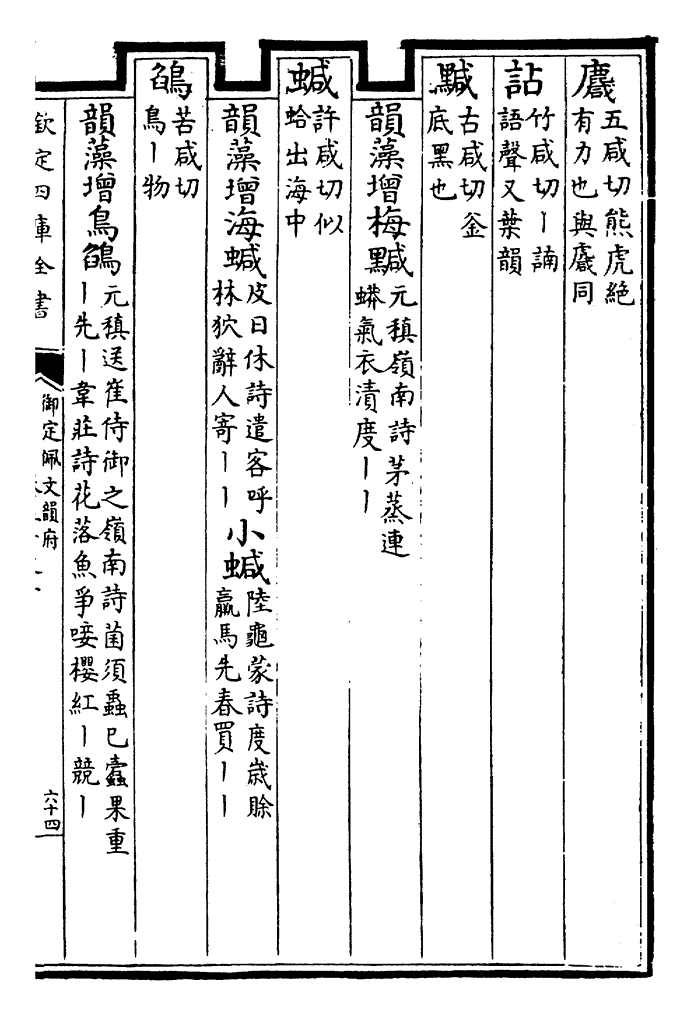 麙
五咸切熊虎絕
有力也與同
詀
竹咸切丨諵
語聲又葉韻
黬
古咸切釜
底黑也
韻藻增梅黬
元稹嶺南詩茅蒸連
蟒氣衣漬度丨丨
蝛
許咸切似
蛤出海中
韻藻增海蝛
皮日休詩遣客呼
林狖辭人寄丨丨
小蝛
陸龜蒙詩度歲賒
羸馬先春買丨丨
鵮
苦咸切
鳥丨物
韻藻增鳥鵮
元稹送崔侍御之嶺南詩菌須蟲已蠹果重
丨先丨韋莊詩花落魚爭唼櫻紅丨競丨
欽定四庫全書
御定佩文韻府
六十四